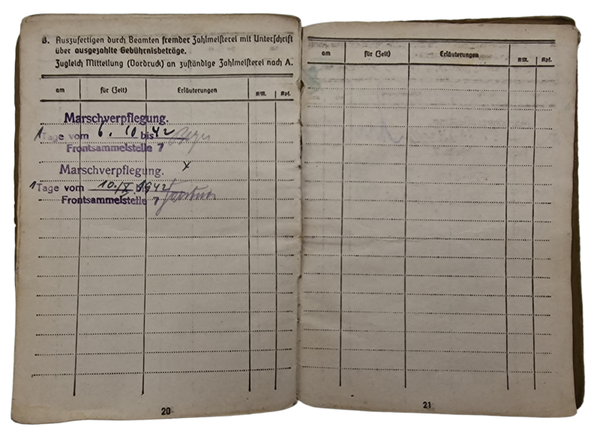 B. Auszufertigen durch Beamten fremder Zahlmeisterei mit Unterschrift
über ausgezahlte Gebührnisbeträge.
Zugleich Mitteilung (Vordruck) an zuständige Zahlmeisterei nach A.
am für (Zeit) Erläuterungen RM. Rpf.
Marschverpflegung.
1 Tage vom 6. 10 bis 42
Frontsammelstelle 7
Marschverpflegung. x
1 Tage vom 10. X 1942
Frontsammelstelle 7
20
am für (Zeit) Erläuterungen RM. Rpf.
21